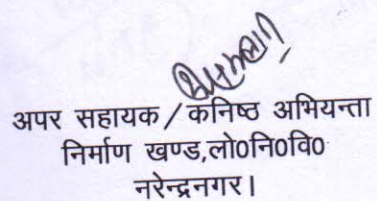 अपर सहायक / कनिष्ठ अभियन्ता
निर्माण खण्ड,लो0नि0वि0
नरेन्द्रनगर।